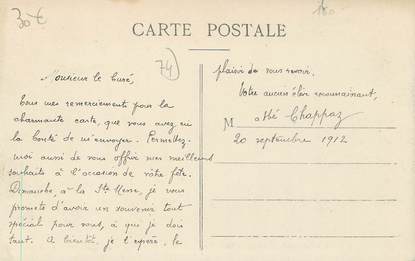 30€
CARTE POSTALE
74
Monsieur le Curé,
Tous mes remerciements pour la
charmante carte, que vous avez eu
la bonté de m'envoyer. Permettez-
moi aussi de vous offrir mes meilleurs
souhaits à l'occasion de vôtre fête.
Dimanche, à la Ste Messe, je vous
promets d'avoir un souvenir tout
spécial pour vous, à qui je dois
tant. A bientôt, je l'espère, le
plaisir de vous revoir.
Votre ancien élève reconnaissant,
M
abbé Chappaz
20 septembre 1912